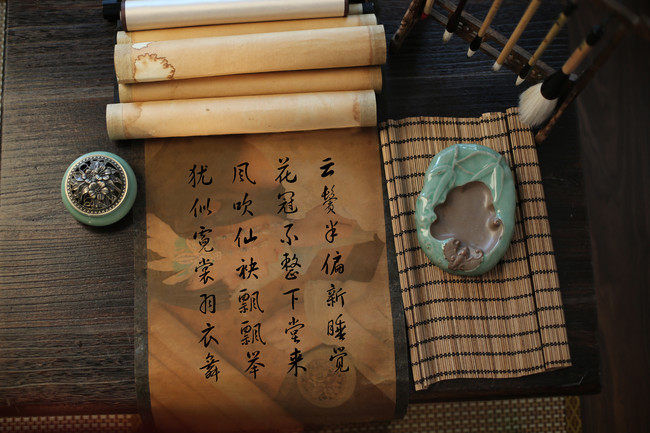 云鬓半偏新睡觉
花冠不整下堂来
风吹仙袂飘飘举
犹似霓裳羽衣舞